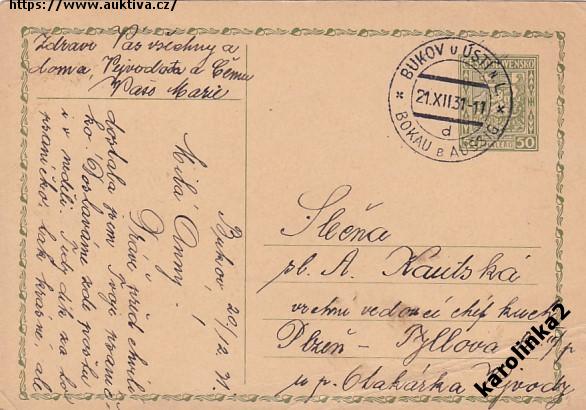 https://www.auktiva.cz/
Zdraví Vás všechny a
doma, Vejvodata a Čenu
Vaše Marie
Bukov 20/12. 31.
Milá Anny!
Právě před chvílí
dostala jsem Tvoje psaníč-
ko. Dostáváme zde poštu
i v neděli. Tedy dík za
psaníčko, tak krásné, ale
BUKOV u ÚSTÍ N. L.
21.XII.31-11
d
BOKAU B AUSSIG
SLOVENSKO
50
Slečna
sl. A. Kautská
vrchní vedoucí chéf kuch
Plzeň - Tyllova
u p. Otakárka Vejvody
karolinka2